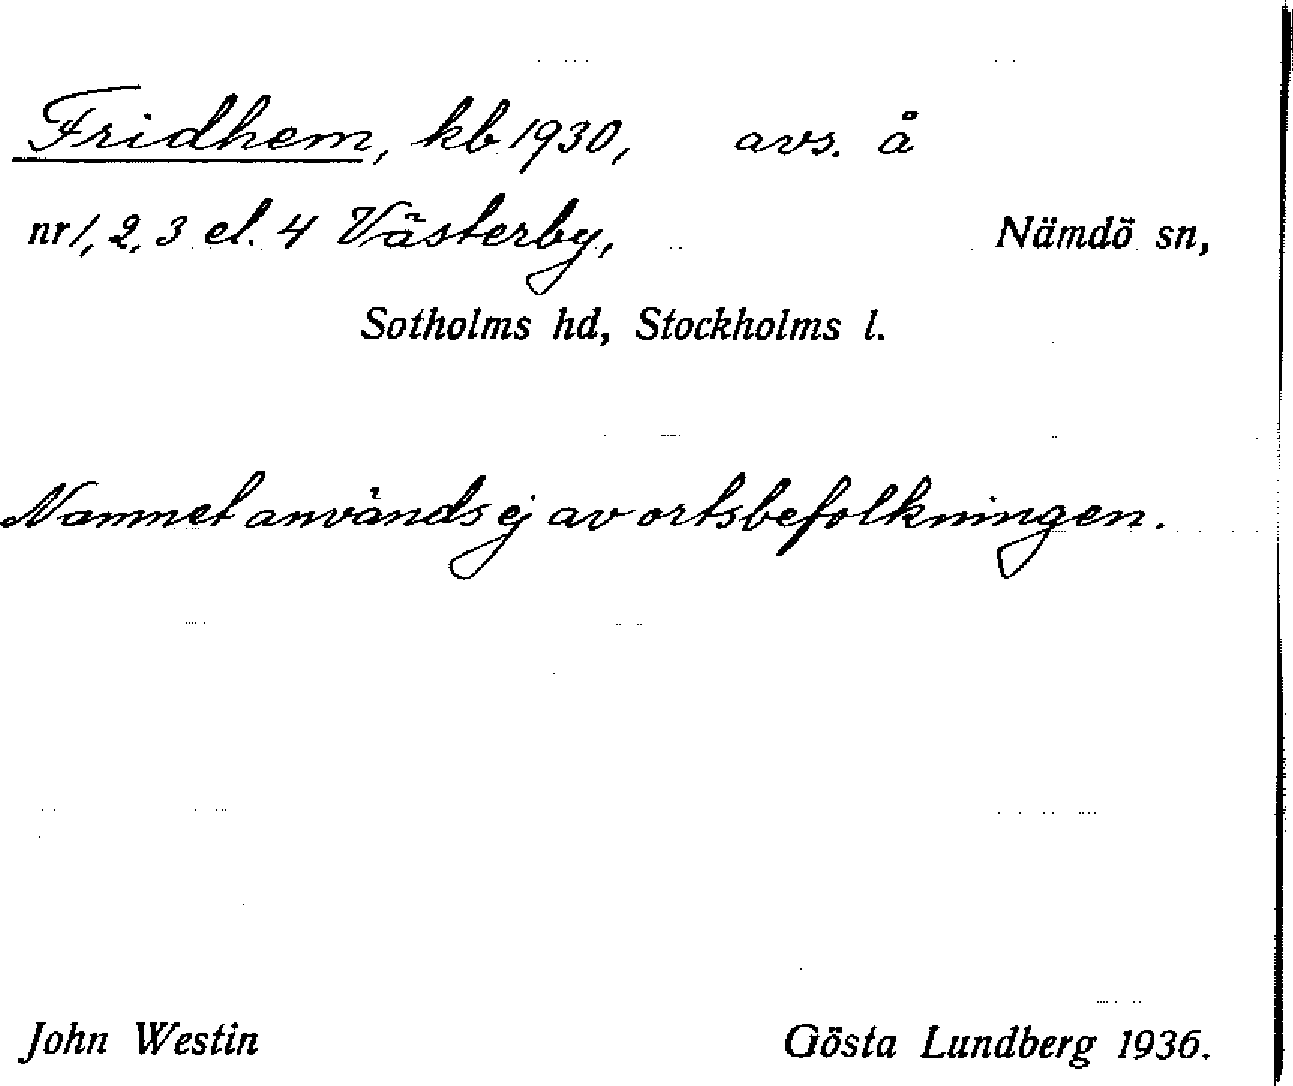 Fridhem, kb 1930, avs. å
nr 1, 2, 3 el. 4 Västerby, Nämdö sn,
Sotholms hd, Stockholms l.
Namnet används ej av ortsbefolkningen.
John Westin Gösta Lundberg 1936.